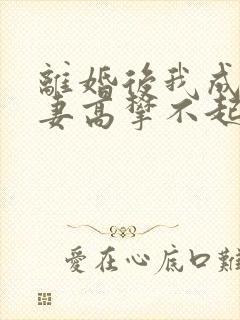 離婚後我成
妻高攀不起
愛在心底口難